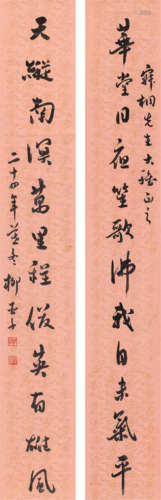 寐桐先生大雅正之
華堂日夜笙歌沸我自未氣平
天縱南溟萬里程後英有雄風
二十四年孟冬柳亞子